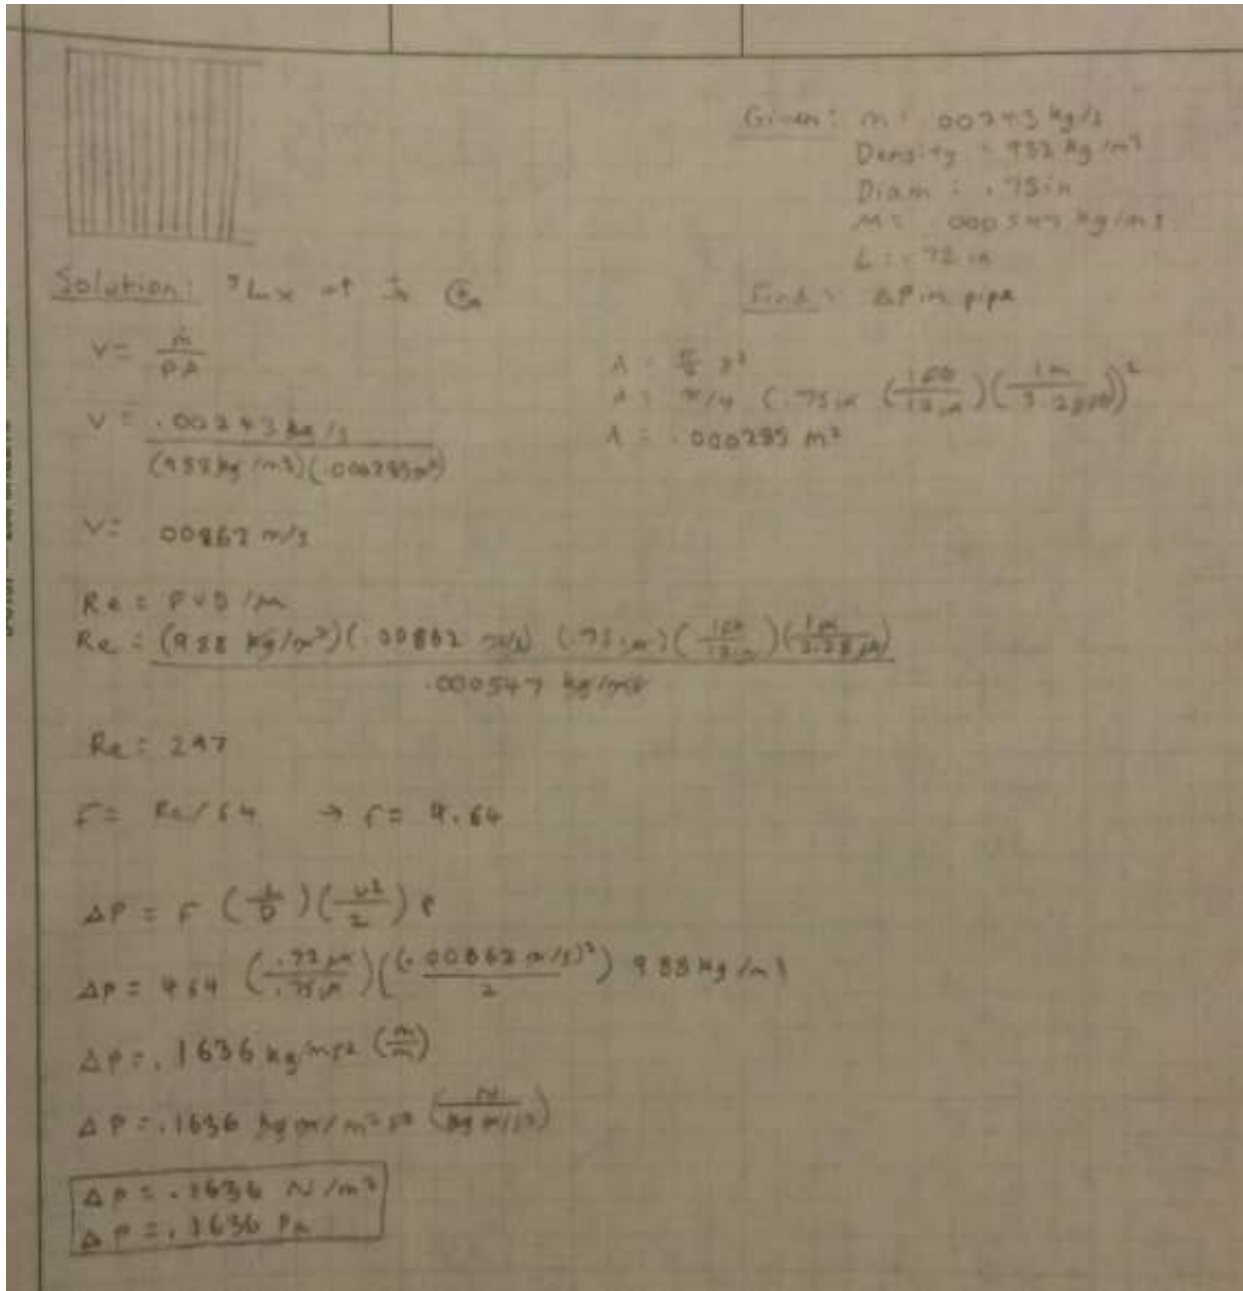 Given: ṁ = .00243 kg/s
Density = 988 kg/m³
Diam = .75in
μ = .000547 kg/ms
L = .72 in
Find: ΔP in pipe
Solution:
V = ṁ/ρA
A = π/4 D²
A = π/4 (.75in (1ft/12in)(1m/3.28ft))²
A = .000285 m²
V = .00243 kg/s / (988 kg/m³)(.000285m²)
V = .00862 m/s
Re = ρVD/μ
Re = (988 kg/m³)(.00862 m/s)(.75in)(1ft/12in)(1m/3.28ft) / .000547 kg/ms
Re = 297
F = Re/64 → F = 4.64
ΔP = F (L/D)(V²/2) ρ
ΔP = 4.64 (.72in/.75in)((.00862 m/s)²/2) 988 kg/m³
ΔP = .1636 kg/ms² (m/m)
ΔP = .1636 kg m/m² s² (N/kg m/s²)
ΔP = .1636 N/m²
ΔP = .1636 Pa